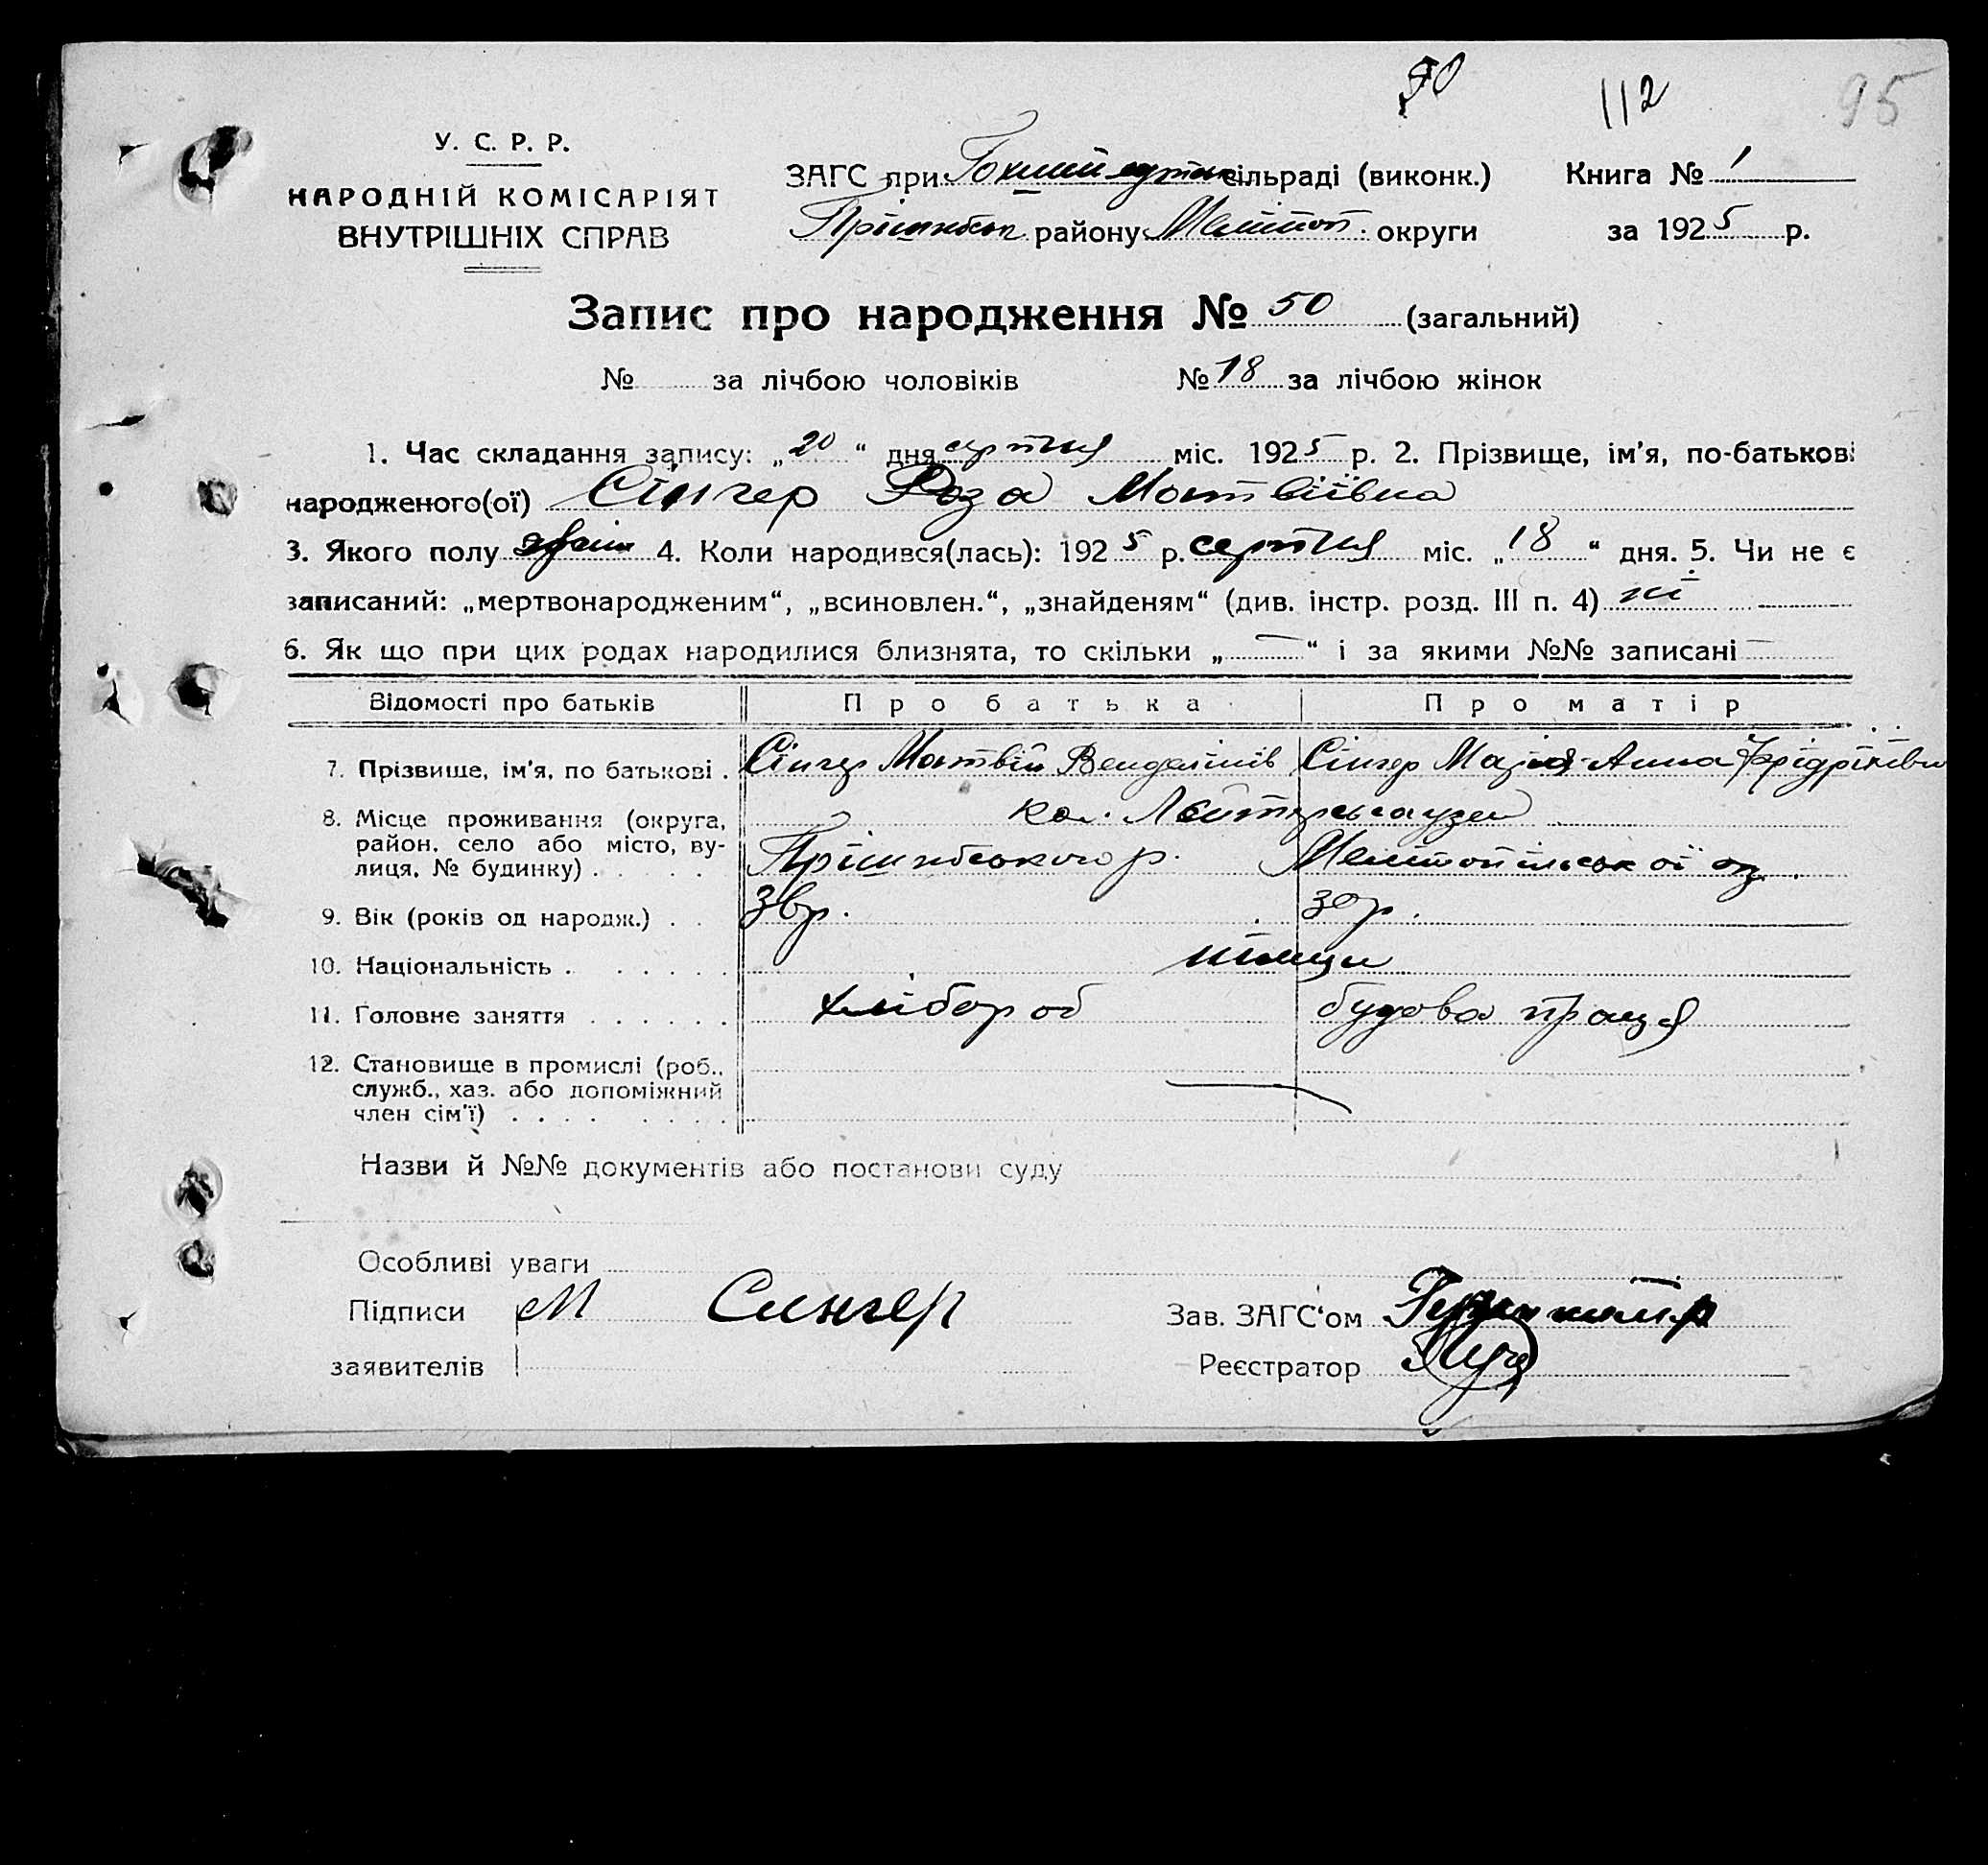 90 112 95
У. С. Р. Р.
НАРОДНІЙ КОМІСАРІЯТ
ВНУТРІШНІХ СПРАВ
ЗАГС при сільраді (виконк.) Книга № 1
району Мелітоп. округи за 1925 р.
Запис про народження № 50 (загальний)
№ за лічбою чоловіків № 18 за лічбою жінок
1. Час складання запису: „20“ дня серпня міс. 1925 р. 2. Прізвище, ім’я, по-батькові
народженого(ої) Сінгер Роза Матвіївна
3. Якого полу 4. Коли народився(лась): 1925 р. серпня міс. „18“ дня. 5. Чи не є
записаний: „мертвонародженим“, „всиновлен.“, „знайденям“ (див. інстр. розд. III п. 4) ні
6. Як що при цих родах народилися близнята, то скільки „—“ і за якими №№ записані —
Відомості про батьків Про батька Про матір
7. Прізвище, ім’я, по батькові . Сінгер Матвій Венделінів Сінгер Марія-Анна Фрідріхівна
8. Місце проживання (округа, кол. Лейтерсгаузен
район, село або місто, ву-
лиця, № будинку) . . . . . Пришибського р. Мелітопільської ок.
9. Вік (років од народж.) . . р. 30 р.
10. Національність . . . . . . німці
11. Головне заняття . . . . . . хлібороб будова праця
12. Становище в промислі (роб.,
служб., хаз. або допоміжний
член сім’ї) . . . . . . . . —
Назви й №№ документів або постанови суду
Особливі уваги
Підписи М Сингер Зав. ЗАГС‘ом
заявителів Реєстратор